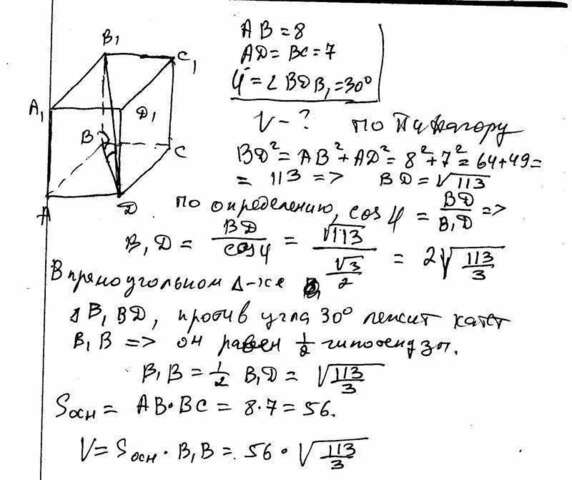 AB = 8
AD = BC = 7
φ = ∠BDB₁ = 30°
V - ? по Пифагору
BD² = AB² + AD² = 8² + 7² = 64 + 49 =
= 113 => BD = √113
по определению, cos φ = BD/B₁D =>
B₁D = BD/cos φ = √113/(√3/2) = 2√(113/3)
В прямоугольном Δ-ке
Δ B₁BD, против угла 30° лежит катет
B₁B => он равен 1/2 гипотенузы.
B₁B = 1/2 B₁D = √(113/3)
Sосн = AB·BC = 8·7 = 56.
V = Sосн · B₁B = 56 · √(113/3)
B₁
C₁
A₁
D₁
B
C
A
D